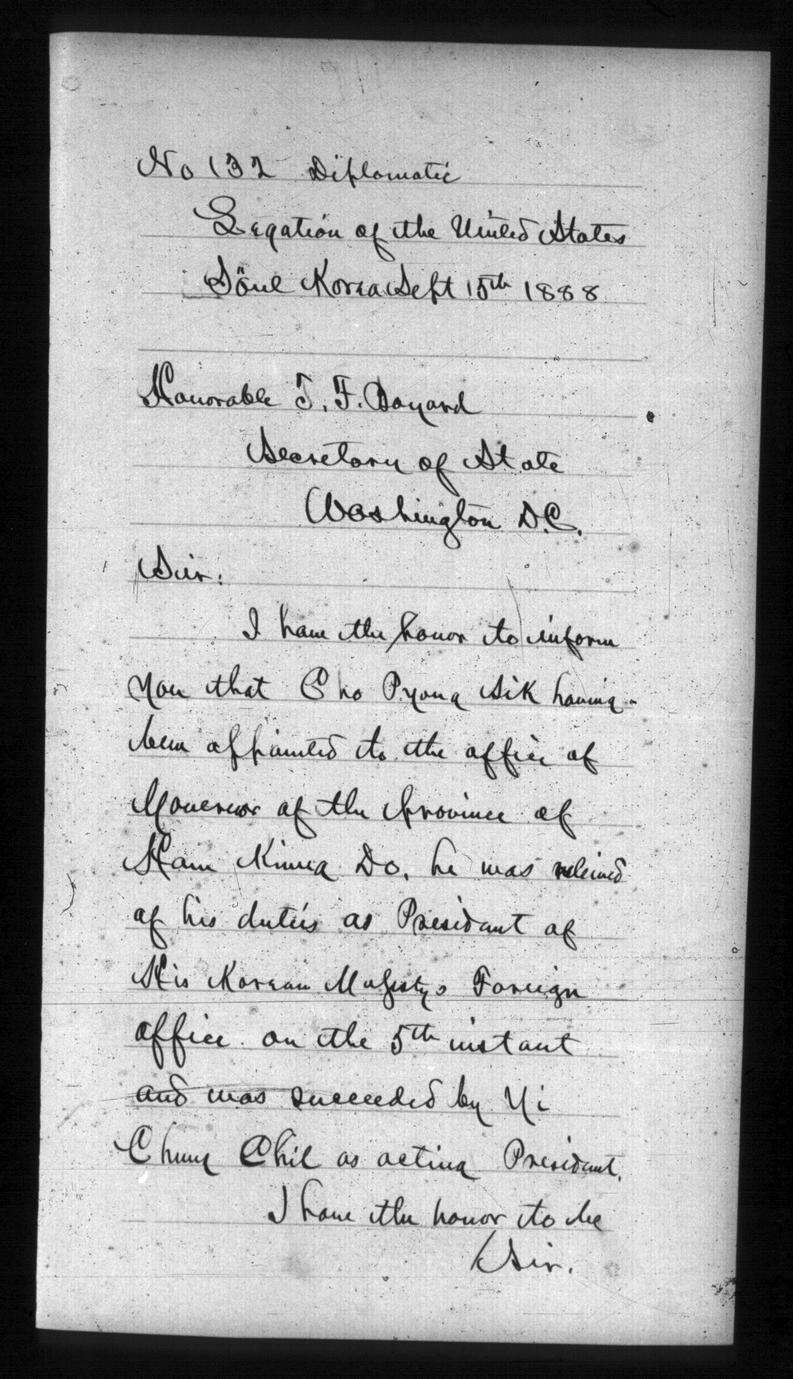 No 132 Diplomatic
Legation of the United States
Söul Korea Sept 15th 1888
Honorable T. F. Bayard
Secretary of State
Washington D.C.
Sir:
I have the honor to inform
you that Cho Pyong Sik having
been appointed to the office of
Governor of the province of
Ham Kiung Do, he was relieved
of his duties as President of
His Korean Majestys Foreign
office on the 5th instant
and was succeeded by Yi
Chung Chil as acting President.
I have the honor to be
Sir.